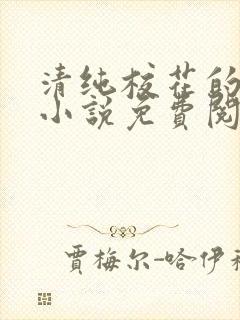 清纯校花的
小説免費閱
賈梅尔-哈伊